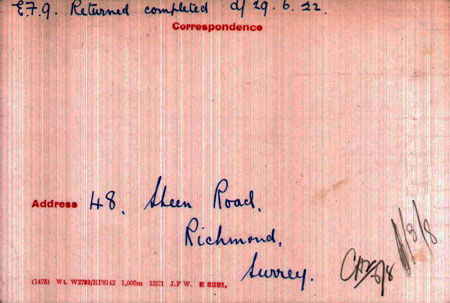 E.F.9. Returned completed d/29.6.22.
Correspondence
Address 48, Sheen Road,
Richmond,
Surrey.
(1475) Wt. W3793/RP8142 1,000m 12/21 J.F.W. E 8281.